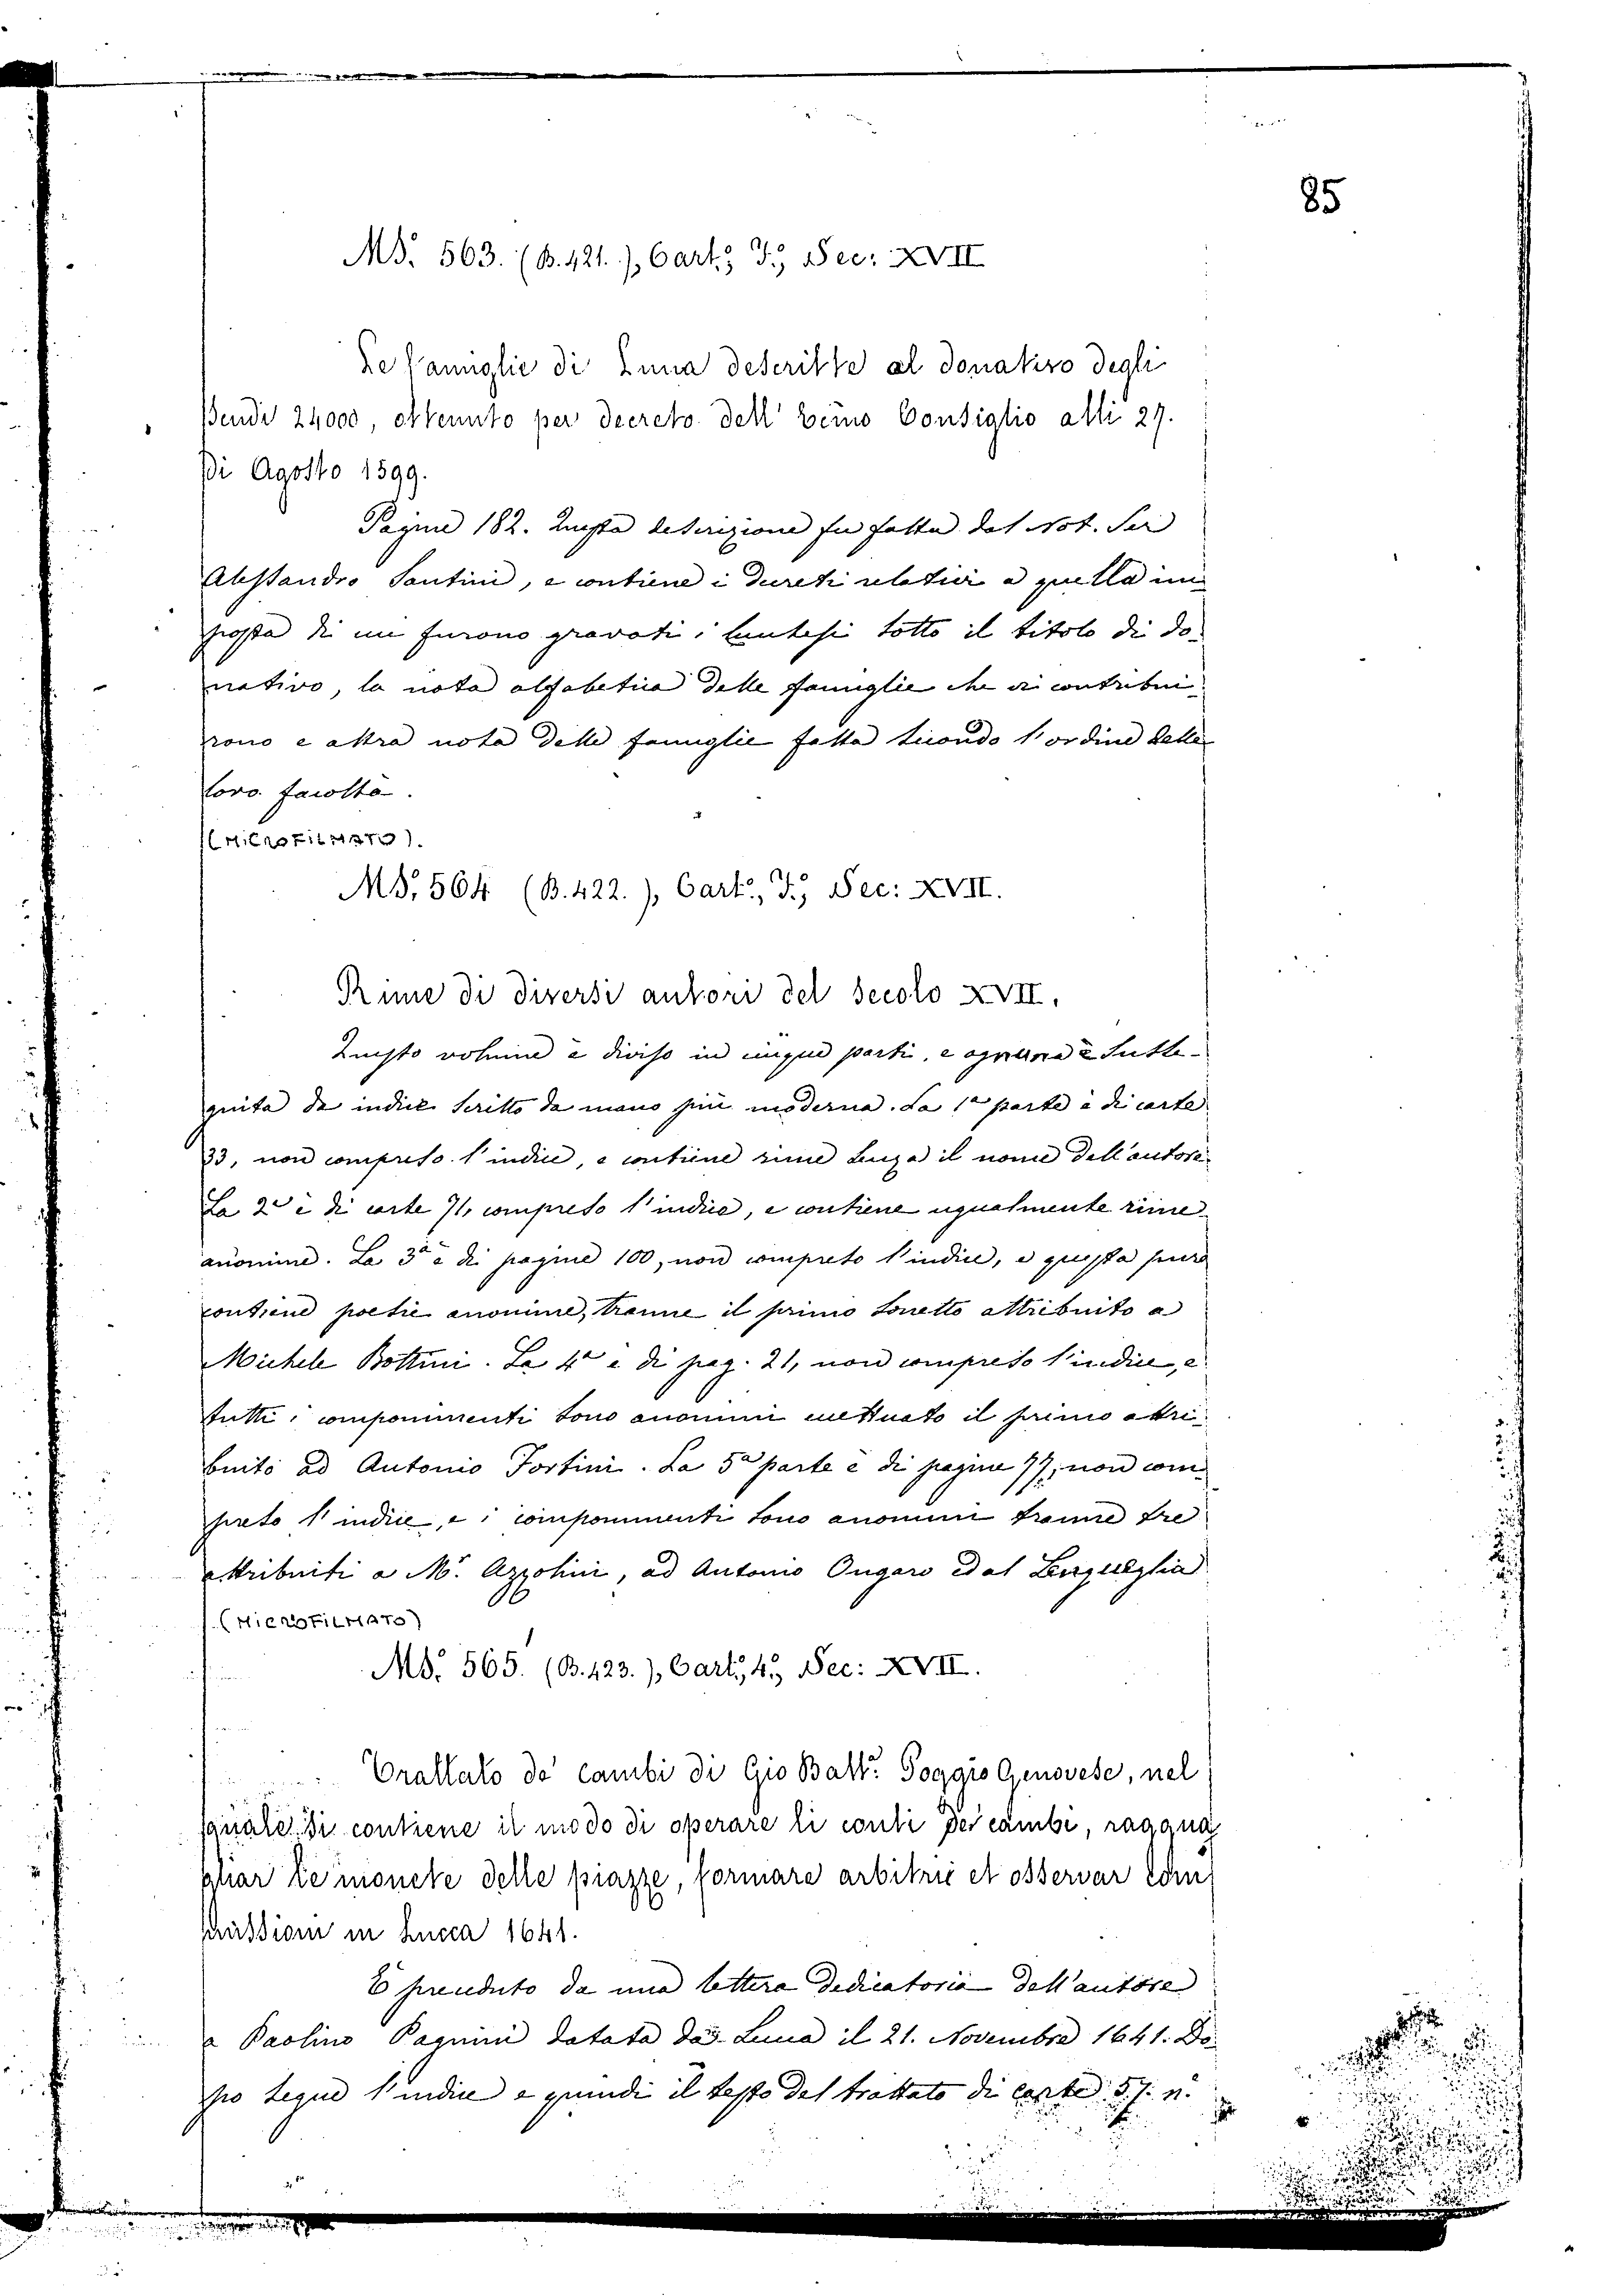 85
MS. 563. (B. 421.), Cart:, F:, Sec: XVII
Le Famiglie di Lucca descritte al donativo degli
scudi 24000, ottenuto per decreto dell' Ecc.mo Consiglio alli 27.
di Agosto 1599.
Pagine 182. Questa descrizione fu fatta dal Not. Ser
Alessandro Santini, e contiene i decreti relativi a quella im
posta di cui furono gravati i Lucchesi sotto il titolo di do-
nativo, la nota alfabetica delle famiglie che vi contribui-
rono e altra nota delle famiglie fatta secondo l'ordine delle
loro facoltà.
(MICROFILMATO).
MS. 564 (B. 422.), Cart:, F:, Sec: XVII.
Rime di diversi autori del secolo XVII.
Questo volume è diviso in cinque parti, e ognuna è susse-
guita da indice scritto da mano più moderna. La 1a parte è di carte
33, non compreso l'indice, e contiene rime senza il nome dell'autore.
La 2a è di carte 71, compreso l'indice, e contiene ugualmente rime
anonime. La 3a è di pagine 100, non compreso l'indice, e questa pure
contiene poesie anonime, tranne il primo sonetto attribuito a
Michele Bottini. La 4a è di pag. 21, non compreso l'indice, e
tutti i componimenti sono anonimi eccettuato il primo attri-
buito ad Antonio Fortini. La 5a parte è di pagine 77, non com
preso l'indice, e i componimenti sono anonimi tranne tre
attribuiti a M. Azzolini, ad Antonio Ongaro e dal Lengueglia
(MICROFILMATO)
MS. 565. (B. 423.), Cart:, 4:, Sec: XVII.
Trattato de' cambi di Gio Batt: Poggio Genovese, nel
quale si contiene il modo di operare li conti dei cambi, raggua
gliar le monete delle piazze, formare arbitrii et osservar com
missioni in Lucca 1641.
È preceduto da una lettera dedicatoria dell'autore
a Paolino Pagnini datata da Lucca il 21. Novembre 1641. Do
po segue l'indice e quindi il testo del trattato di carte 57. n.